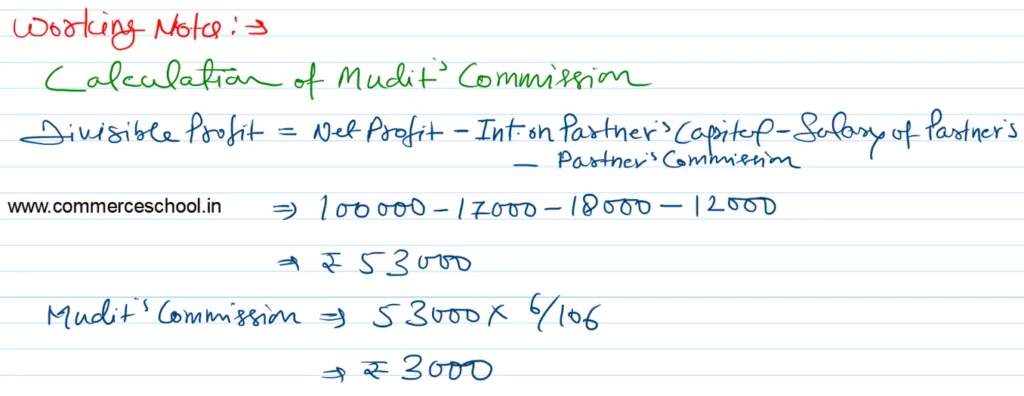 Working Note :⇒
Calculation of Mudit's Commission
Divisible Profit = Net Profit - Int. on Partner's Capital - Salary of Partner's
- Partner's Commission
www.commerceschool.in ⇒ 100000 - 17000 - 18000 - 12000
⇒ ₹ 53000
Mudit's Commission ⇒ 53000 x 6/106
⇒ ₹ 3000